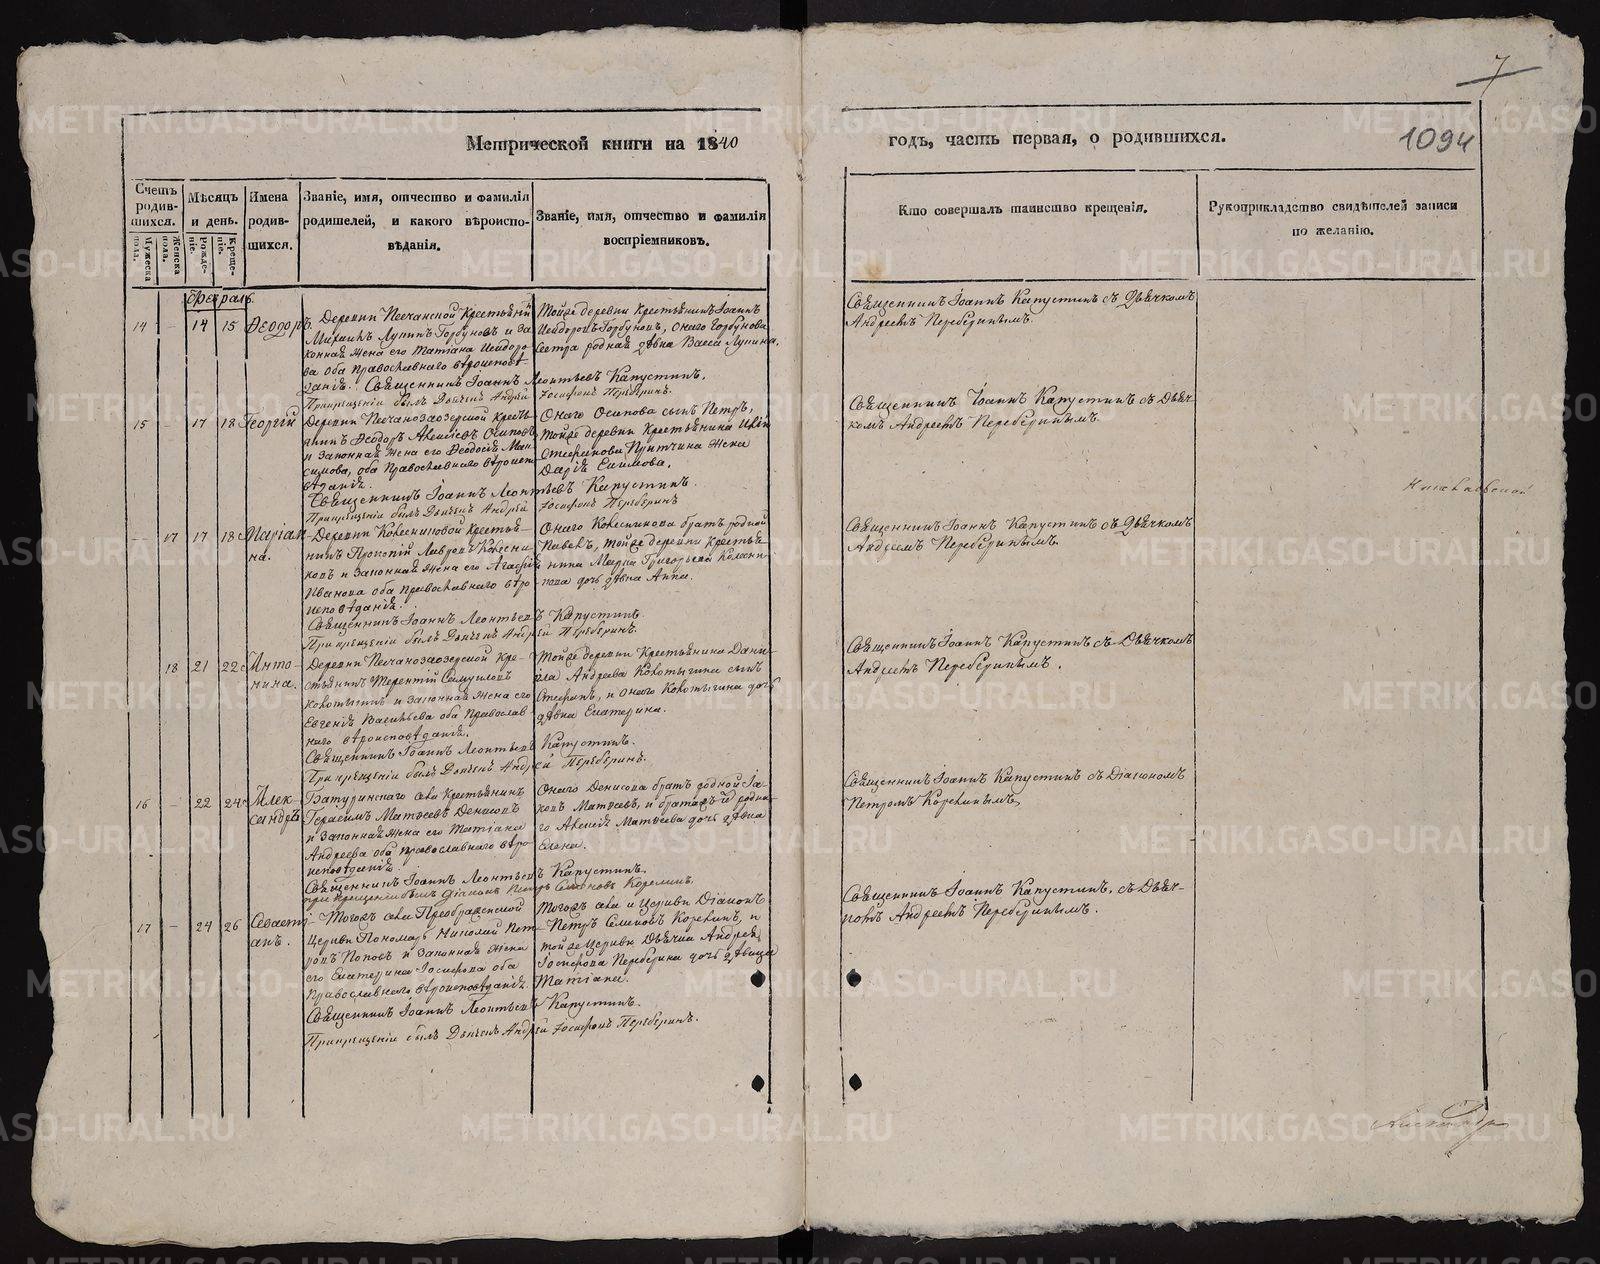 7
1094
Метрической книги на 1840
годъ, часть первая, о родившихся.
Счетъ родив-шихся.
Мужеска пола.
Женска пола.
Мѣсяцъ и день.
Рожде-ніе.
Креще-ніе.
Имена родив-шихся.
Званіе, имя, отчество и фамилія
родителей, и какого вѣроиспо-
вѣданія.
Званіе, имя, отчество и фамилія
воспріемниковъ.
Кто совершалъ таинство крещенія.
Рукоприкладство свидѣтелей записи
по желанію.
Февраль
14 - 14 15 Ѳеодоръ.
Деревни Песчанской Крестьянинъ
Михаилъ Лупинъ Горбуновъ и за
конная жена его Татіана Исидоро
ва оба православнаго вѣроиспов-
ѣданія. Священникъ Іоаннъ Леонтьевъ Капустинъ.
При крещеніи былъ Дьячекъ Андрей Іосифовъ Переберинъ.
Тойже деревни Крестьянинъ Іоаннъ
Исидоровъ Горбуновъ, онаго Горбунова
сестра родная дѣвка Васса Лупина.
Священникъ Іоаннъ Капустинъ съ Дьячкомъ
Андреемъ Переберинымъ.
15 - 17 18 Георгій
Деревни Песчаноозерской Кресть-
янинъ Ѳеодоръ Алексѣевъ Осиповъ
и законная жена его Ѳеодосія Мак
симова, оба Православнаго вѣроисп
вѣданія.
Священникъ Іоаннъ Леонтьевъ Капустинъ.
При крещеніи былъ Дьячекъ Андрей Іосифовъ Переберинъ
Онаго Осипова сынъ Петръ,
тойже деревни Крестьянина
Стефанова жена
Дарія Екимова.
Священникъ Іоаннъ Капустинъ съ Дьяч-
комъ Андреемъ Переберинымъ.
- 17 17 18 Маріан-
на.
Деревни Колесниковой Крестья-
нинъ Прокопій Лавровъ Колесни-
ковъ и законная жена его Агафія
Иванова оба православнаго вѣро
исповѣданія.
Священникъ Іоаннъ Леонтьевъ Капустинъ
При крещеніи былъ Дьячекъ Андрей Переберинъ.
Онаго Колесникова братъ родной
Павелъ, тойже деревни крестья
нина Григорьева Колесни-
кова дочь дѣвка Анна.
Священникъ Іоаннъ Капустинъ съ Дьячкомъ
Андреемъ Переберинымъ.
18 21 22 Анто-
нина.
Деревни Песчаноозерской Кре-
стьянинъ Терентій Самуиловъ
Колотыгинъ и законная жена его
Евгенія Васильева оба Православ-
наго вѣроисповѣданія.
Священникъ Іоаннъ Леонтьевъ Капустинъ.
При крещеніи былъ Дьячекъ Андрей Переберинъ.
Тойже деревни Крестьянина Дани-
ла Андреева Колотыгина сынъ
Стефанъ, и онаго Колотыгина дочь
дѣвка Екатерина.
Священникъ Іоаннъ Капустинъ съ Дьячкомъ
Андреемъ Переберинымъ.
16 - 22 24 Алек-
сандръ
Батуринскаго села Крестьянинъ
Герасимъ Матѳеевъ Денисовъ
и законная жена его Татіана
Андреева оба православнаго вѣро-
исповѣданія.
Священникъ Іоаннъ Леонтьевъ Капустинъ.
при крещеніи былъ Діаконъ Петръ Семеновъ Корелинъ.
Онаго Денисова братъ родной Іа-
ковъ Матѳеевъ, и братаже родна-
го Алексія Матѳеева дочь дѣвка
Елена.
Священникъ Іоаннъ Капустинъ съ Діакономъ
Петромъ Корелинымъ
17 - 24 26 Севасті
анъ.
Тогоже села Преображенской
Церкви Пономарь Николай Пет-
ровъ Поповъ и законная жена
его Екатерина Іосифова оба
Православнаго вѣроисповѣданія.
Священникъ Іоаннъ Леонтьевъ Капустинъ.
При крещеніи былъ Дьячекъ Андрей Іосифовъ Переберинъ.
Тогоже села и Церкви Діаконъ
Петръ Семеновъ Корелинъ, и
тойже церкви Дьячка Андрея
Іосифова Переберина дочь дѣвица
Татіана.
Священникъ Іоаннъ Капустинъ, съ Дьяч-
комъ Андреемъ Переберинымъ.
METRIKI.GASO-URAL.RU